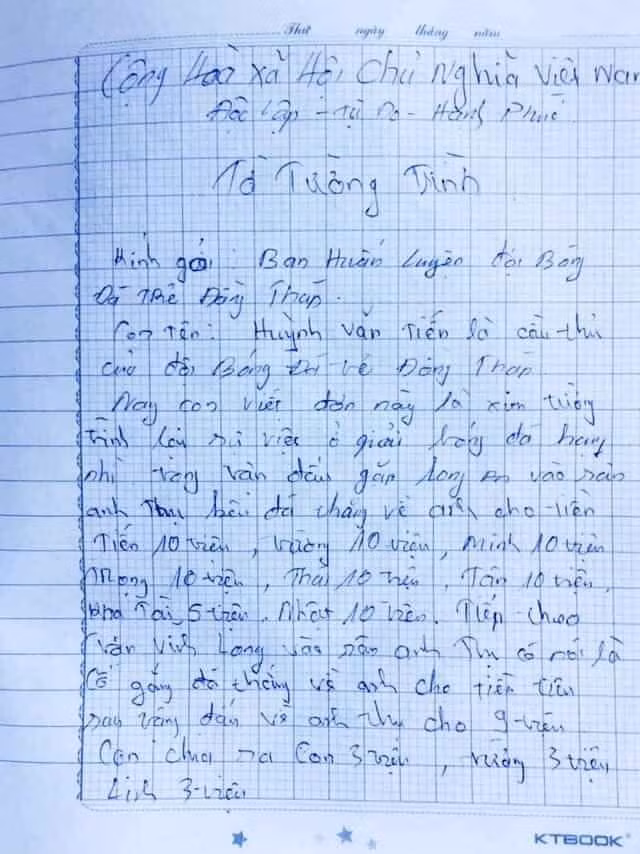 Thứ ngày tháng năm
Cộng Hoà xã Hội Chủ Nghĩa Việt Nam
Độc lập - Tự Do - Hạnh Phúc
Tờ Tường Trình
Kính gởi : Ban Huấn luyện đội Bóng
Đá Trẻ Đồng Tháp.
Con tên : Huỳnh văn Tiến là cầu thủ
của đội Bóng Đá trẻ Đồng Tháp
Nay con viết đơn này là xin tường
trình lại sự việc ở giải bóng đá hạng
nhì trong vận đấu gặp long an vào sân
anh Thụ kêu đá thắng về anh cho tiền
Tiến 10 triệu, vương 10 triệu, Minh 10 triệu
Trọng 10 triệu, Thái 10 triệu, Tân 10 triệu,
Tài 5 triệu. Nhật 10 triệu. Tiếp theo
trận vĩnh Long vào sân anh Thụ có nói là
cố gắng đá thắng về anh cho tiền tiêu
sau trận đấu về anh thụ cho 9 triệu
Con chia ra Con 3 triệu, vương 3 triệu
Linh 3 triệu
KTBOOK